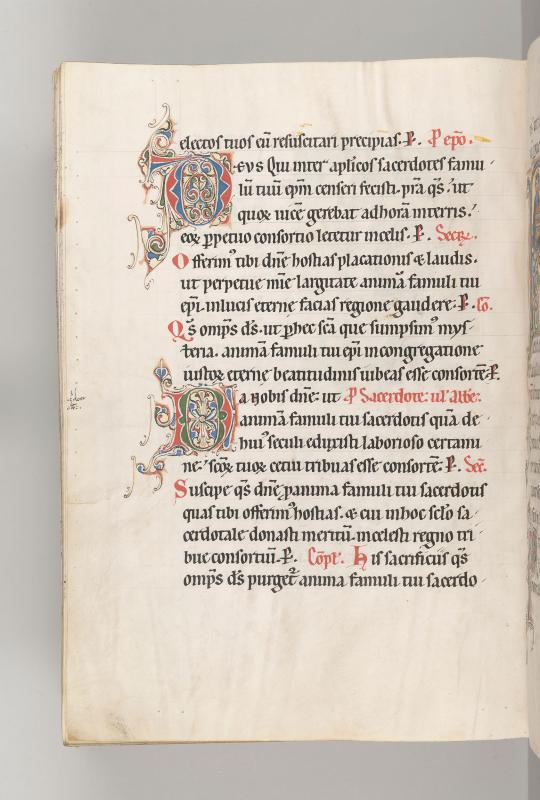 electos tuos cū resuscitari precipias. P. P epō.
Deus Qui inter aplicos sacerdotes famu
lū tuū epm̄ censeri fecisti. pr̄a qs̄. ut
quoꝝ uicē gerebat ad horā in terris.
eoꝝ ꝑpetuo consortio letetur in celis. P. Secr̄.
Offerimꝰ tibi dn̄e hostias placationis & laudis.
ut perpetue mīe largitate animā famuli tui
epi. in lucis eterne facias regione gaudere. P. Cō.
Qs̄ omps̄ ds̄. ut ꝑ hec sc̄a que sumpsimꝰ mys
teria. animā famuli tui epi in congregatione
iustoꝝ eterne beatitudinis iubeas esse consortē. P.
Da nobis dn̄e. ut P Sacerdote. ul' abbe.
animā famuli tui sacerdotis quā de
huiꝰ seculi eduxisti laborioso certami
ne. sc̄oꝝ tuoꝝ cetui tribuas esse consortē. P. Sec̄.
Suscipe qs̄ dn̄e ꝓ anima famuli tui sacerdotis
quas tibi offerimꝰ hostias. & cui in hoc sclo sa
cerdotale donasti meritū. in celesti regno tri
bue consortiū. P. Cōpl. His sacrificiis qs̄
omps̄ ds̄ purget̉ anima famuli tui sacerdo